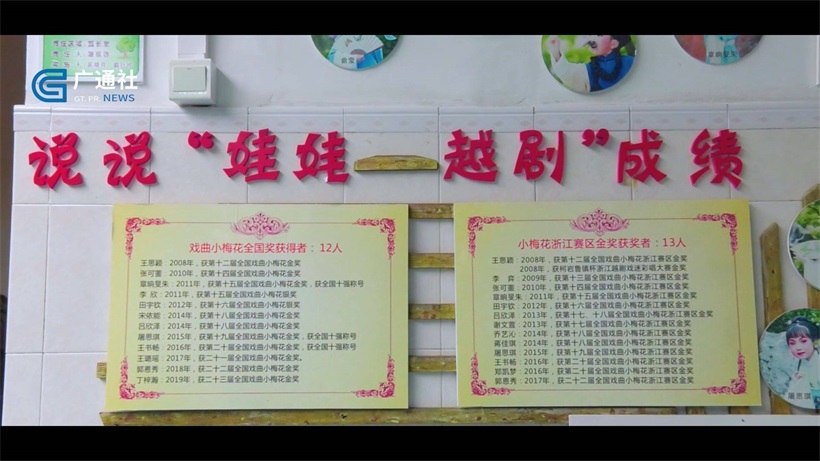 广通社
GT. PR. NEWS
说说“娃娃—越剧”成绩
戏曲小梅花全国奖获得者：12人
王思颖：2008年，获第十二届全国戏曲小梅花金奖
张可蓥：2010年，获第十四届全国戏曲小梅花金奖
章晌旻朱：2011年，获第十五届全国戏曲小梅花金奖，获全国十强称号
李 欣：2011年，获第十五届全国戏曲小梅花银奖
田宇钦：2012年，获第十六届全国戏曲小梅花银奖
宋依能：2014年，获第十八届全国戏曲小梅花金奖
吕欣泽：2014年，获第十八届全国戏曲小梅花金奖
屠思琪：2015年，获第十九届全国戏曲小梅花金奖，获全国十强称号
王书畅：2016年，获第二十届全国戏曲小梅花金奖，获全国十强称号
王璐瑶：2017年，获二十一届全国戏曲小梅花金奖。
郭恩秀：2018年，获二十二届全国戏曲小梅花金奖
丁梓瀚：2019年，获二十三届全国戏曲小梅花金奖
小梅花浙江赛区金奖获奖者：13人
王思颖：2008年，获第十二届全国戏曲小梅花浙江赛区金奖
2008年，获柯岩鲁镇杯浙江越剧戏迷彩唱大赛金奖
李 弈：2009年，获第十三届全国戏曲小梅花浙江赛区金奖
张可蓥：2010年，获第十四届全国戏曲小梅花浙江赛区金奖
章晌旻朱：2011年，获第十五届全国戏曲小梅花浙江赛区金奖
田宇钦：2012年，获第十六届全国戏曲小梅花浙江赛区金奖
吕欣泽：2013年，获第十七、十八届全国戏曲小梅花浙江赛区金奖
谢文萱：2013年，获第十七届全国戏曲小梅花浙江赛区金奖
乔艺沁：2014年，获第十八届全国戏曲小梅花浙江赛区金奖
蒋佳琪：2014年，获第十八届全国戏曲小梅花浙江赛区金奖
屠思琪：2015年，获第十九届全国戏曲小梅花浙江赛区金奖
王书畅：2016年，获第二十届全国戏曲小梅花浙江赛区金奖
郑凯梦：2016年，获第二十届全国戏曲小梅花浙江赛区金奖
郭恩秀：2017年，获二十二届全国戏曲小梅花浙江赛区金奖
屠思琪